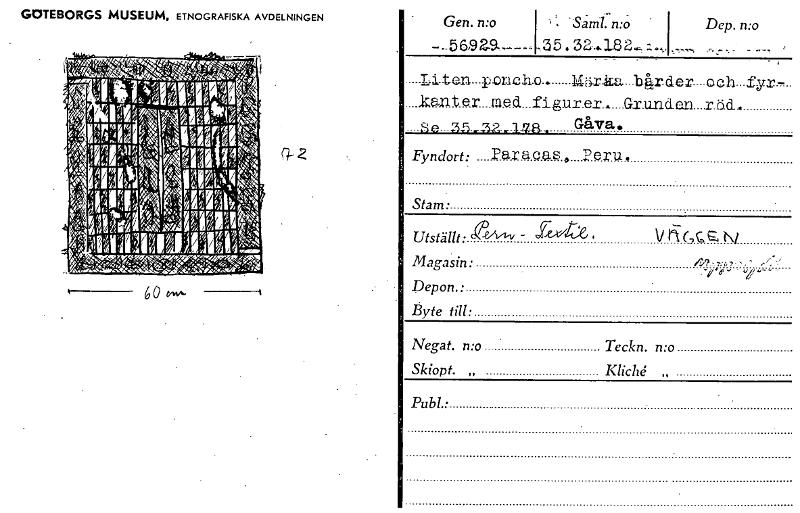 GÖTEBORGS MUSEUM, ETNOGRAFISKA AVDELNINGEN
72
60 cm
Gen. n:o Saml. n:o Dep. n:o
56929 35.32.182
Liten poncho. Mörka bårder och fyr-
kanter med figurer. Grunden röd.
Se 35.32.178. Gåva.
Fyndort: Paracas, Peru.
Stam:
Utställt: Peru - Textil. VÄGGEN
Magasin:
Depon.:
Byte till:
Negat. n:o Teckn. n:o
Skiopt. „ Kliché „
Publ.: